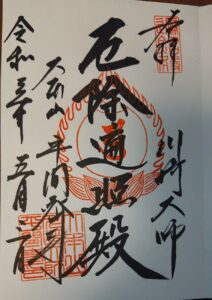 奉拝
川崎大師
厄除遍照殿
大本山 平間寺
令和 年 五月 日